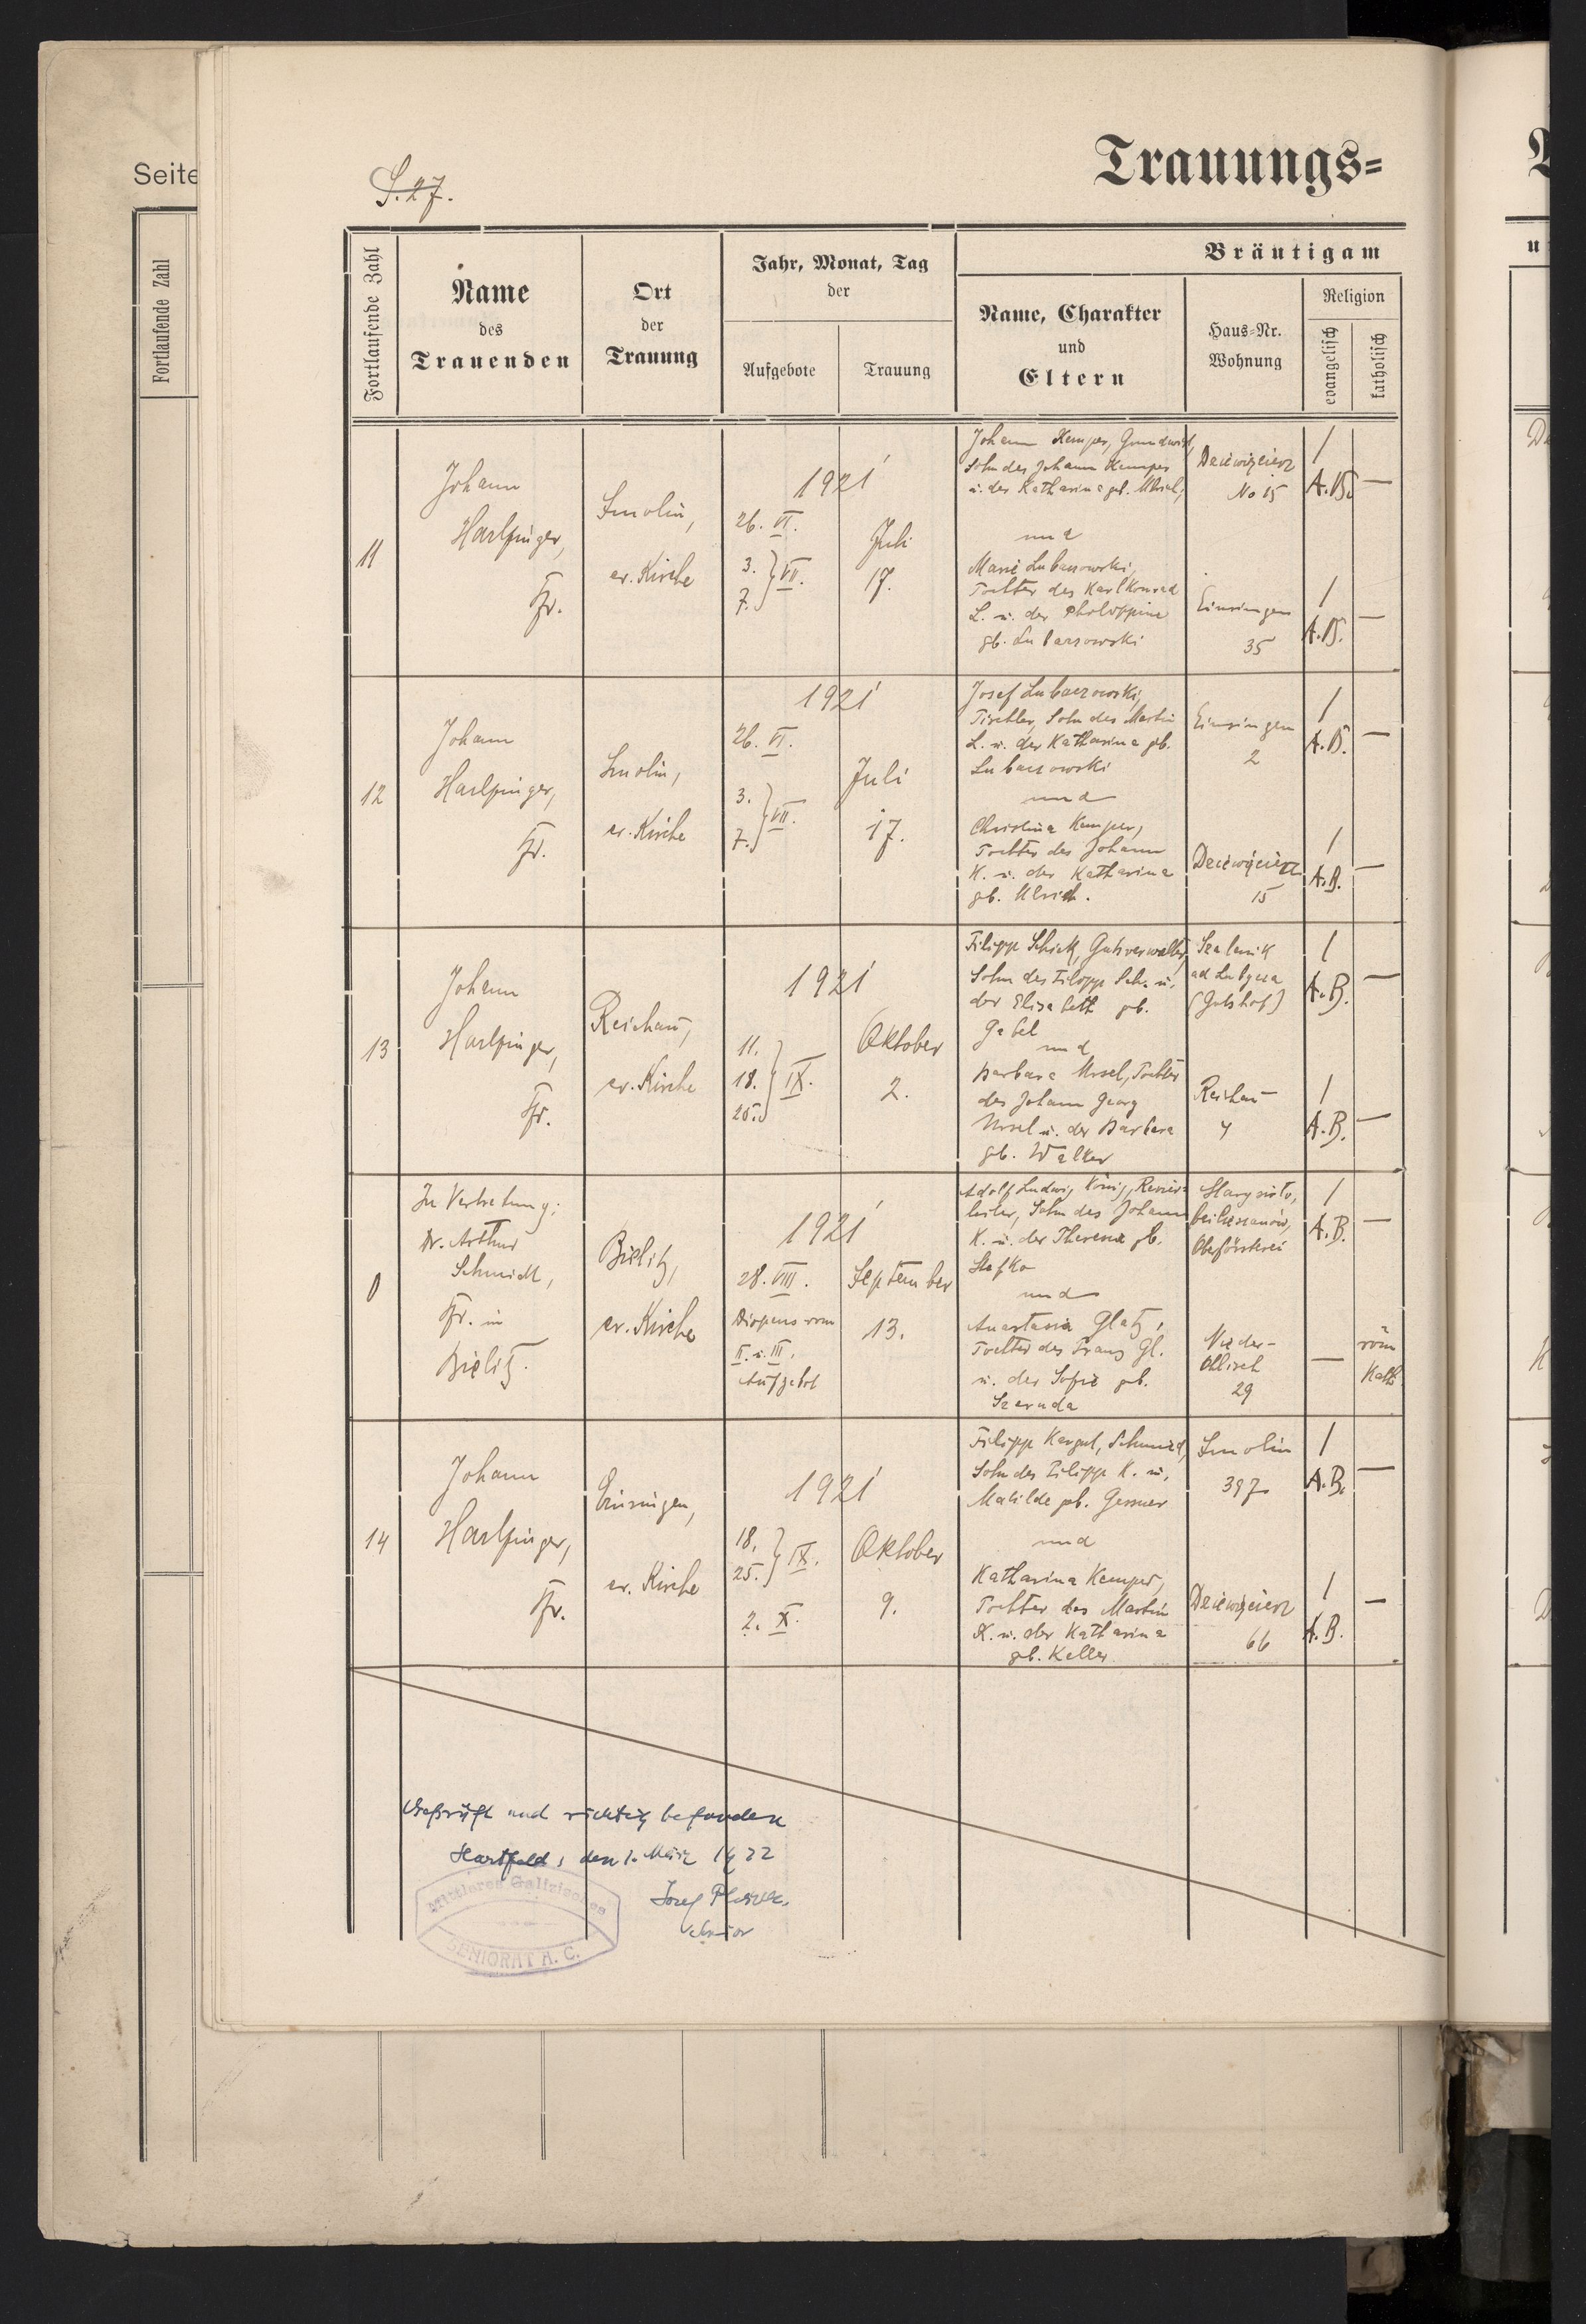 Seite
Fortlaufende Zahl
S. 27.
Trauungs=
Fortlaufende Zahl
Name
des
Trauenden
Ort
der
Trauung
Jahr, Monat, Tag
der
Aufgebote
Trauung
Bräutigam
Name, Charakter
und
Eltern
Haus=Nr.
Wohnung
Religion
evangelisch
katholisch
11
Johann
Harlfinger,
Pfr.
Smolin,
ev. Kirche
1921
26. VI.
3.
7. } VII.
Juli
17.
Johann Kemper, Grundwirt,
Sohn des Johann Kemper
u. der Katharina gb.
und
Marie Lubaszowski,
Tochter des Karl Konrad
L. u. der Philippine
gb. Lubaszowski
Dziewięcierz
No 15
/
A.B.
—
Einsingen
35
/
A.B.
—
12
Johann
Harlfinger,
Pfr.
Smolin,
ev. Kirche
1921
26. VI.
3.
7. } VII.
Juli
17.
Josef Lubaczowski,
Tischler, Sohn des Martin
L. u. der Katharina gb.
Lubaczowski
und
Christina Kemper,
Tochter des Johann
K. u. der Katharina
gb. Ulrich.
Einsingen
2
/
A.B.
—
Dziewięcierz
15
/
A.B.
—
13
Johann
Harlfinger,
Pfr.
Reichau,
ev. Kirche
1921
11.
18. } IX.
25.
Oktober
2.
Filipp Schick, Gutsverwalter,
Sohn des Filipp Sch. u.
der Elisabeth gb.
Gabel
und
Barbara Ursel, Tochter
des Johann Georg
Ursel u. der Barbara
gb. Walker
Szalenik
ad Lubycza
(Gutshof)
/
A.B.
—
Reichau
4
/
A.B.
—
0
In Vertretung:
Dr. Arthur
Schmidt,
Pfr. in
Bielitz.
Bielitz,
ev. Kirche
1921
28. VIII.
Dispens vom
II. u. III.
Aufgebot
September
13.
Adolf Ludwig König, Revier=
leiter, Sohn des Johann
K. u. der Theresia gb.
Stefko
und
Anastasia Glatz,
Tochter des Franz Gl.
u. der Sofie gb.
Szeruda
Oberförsterei
/
A.B.
—
Nieder-
Ohlisch
29
—
röm
Kath.
14
Johann
Harlfinger,
Pfr.
Einsingen,
ev. Kirche
1921
18.
25. } IX.
2. X.
Oktober
9.
Filipp Kargul, Schmied,
Sohn des Filipp K. u.
Matilde gb. Gessner
und
Katharina Kemper,
Tochter des Martin
K. u. der Katharina
gb. Keller
Smolin
397
/
A.B.
—
Dziewięcierz
66
/
A.B.
—
Geprüft und richtig befunden
Hartfeld, den 1. März 1922
Josef
Senior
Mittleres Galizisches
SENIORAT A. C.